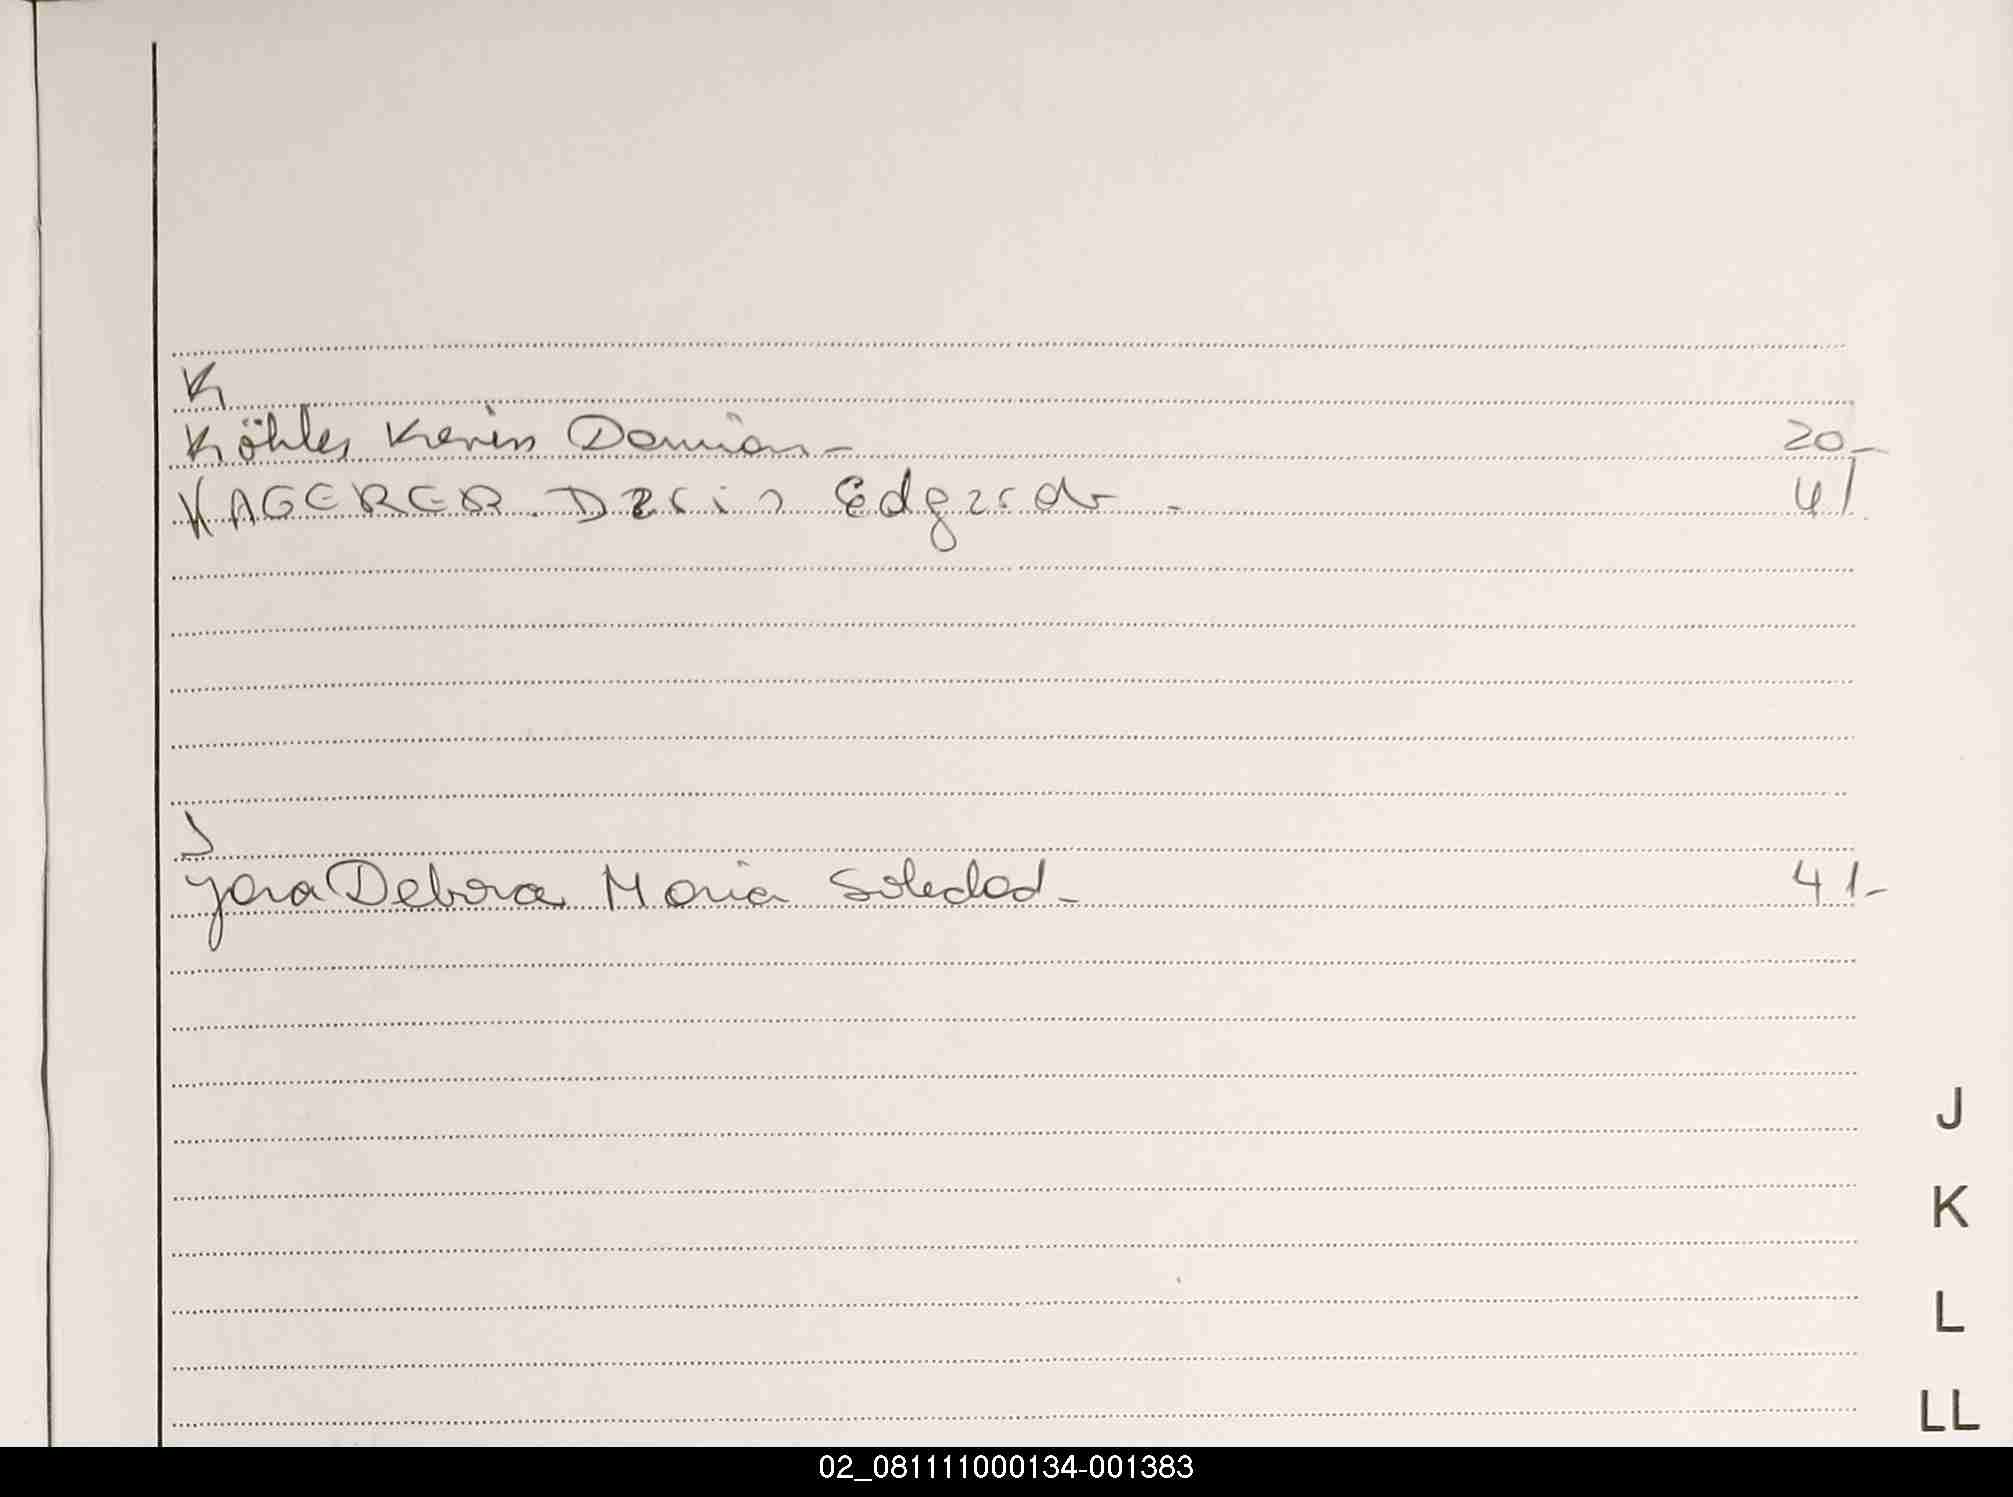 K
Köhler Kevin Damián - 20-
KAGERER. Darío Edgardo - 41
J
Jara Debora María Soledad - 41-
J
K
L
LL
02_081111000134-001383